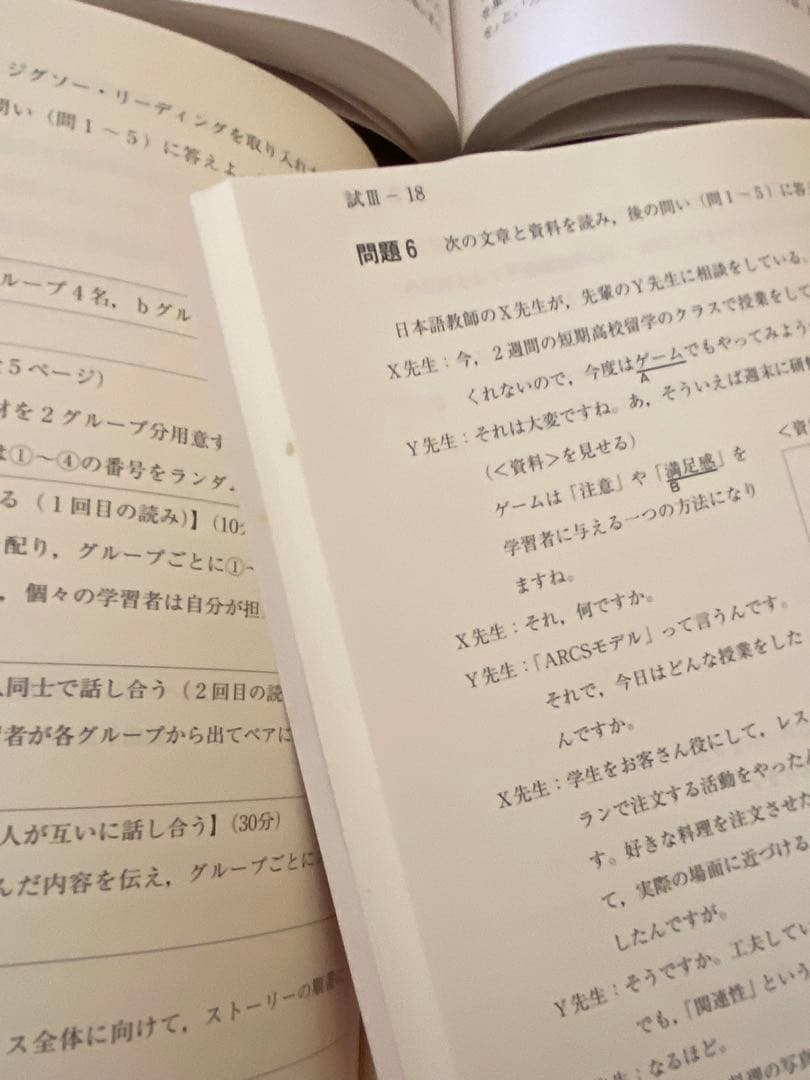 ジグソー・リーディングを取り入れ
問い（問1～5）に答えよ
ループ4名，bグル
5ページ）
材を2グループ分用意す
は①～④の番号をランダ
る（1回目の読み）】（10
配り，グループごとに①
，個々の学習者は自分が担
人同士で話し合う（2回目の読
習者が各グループから出てペアに
人が互いに話し合う】（30分）
んだ内容を伝え，グループごとに
ス全体に向けて，ストーリーの順番
試Ⅲ－18
問題6 次の文章と資料を読み，後の問い（問1～5）に答
日本語教師のX先生が，先輩のY先生に相談をしている。
X先生：今，2週間の短期高校留学のクラスで授業をして
くれないので，今度はゲームでもやってみよう
A
Y先生：それは大変ですね。あ，そういえば週末に研
（＜資料＞を見せる）
＜資
ゲームは「注意」や「満足感」を
B
学習者に与える一つの方法になり
ますね。
X先生：それ，何ですか。
Y先生：「ARCSモデル」って言うんです。
それで，今日はどんな授業をした
んですか。
X先生：学生をお客さん役にして，レス
ランで注文する活動をやったん
す。好きな料理を注文させた
て，実際の場面に近づける
したんですが。
Y先生：そうですか。工夫してい
でも，「関連性」という
生：なるほど。
料理の写真